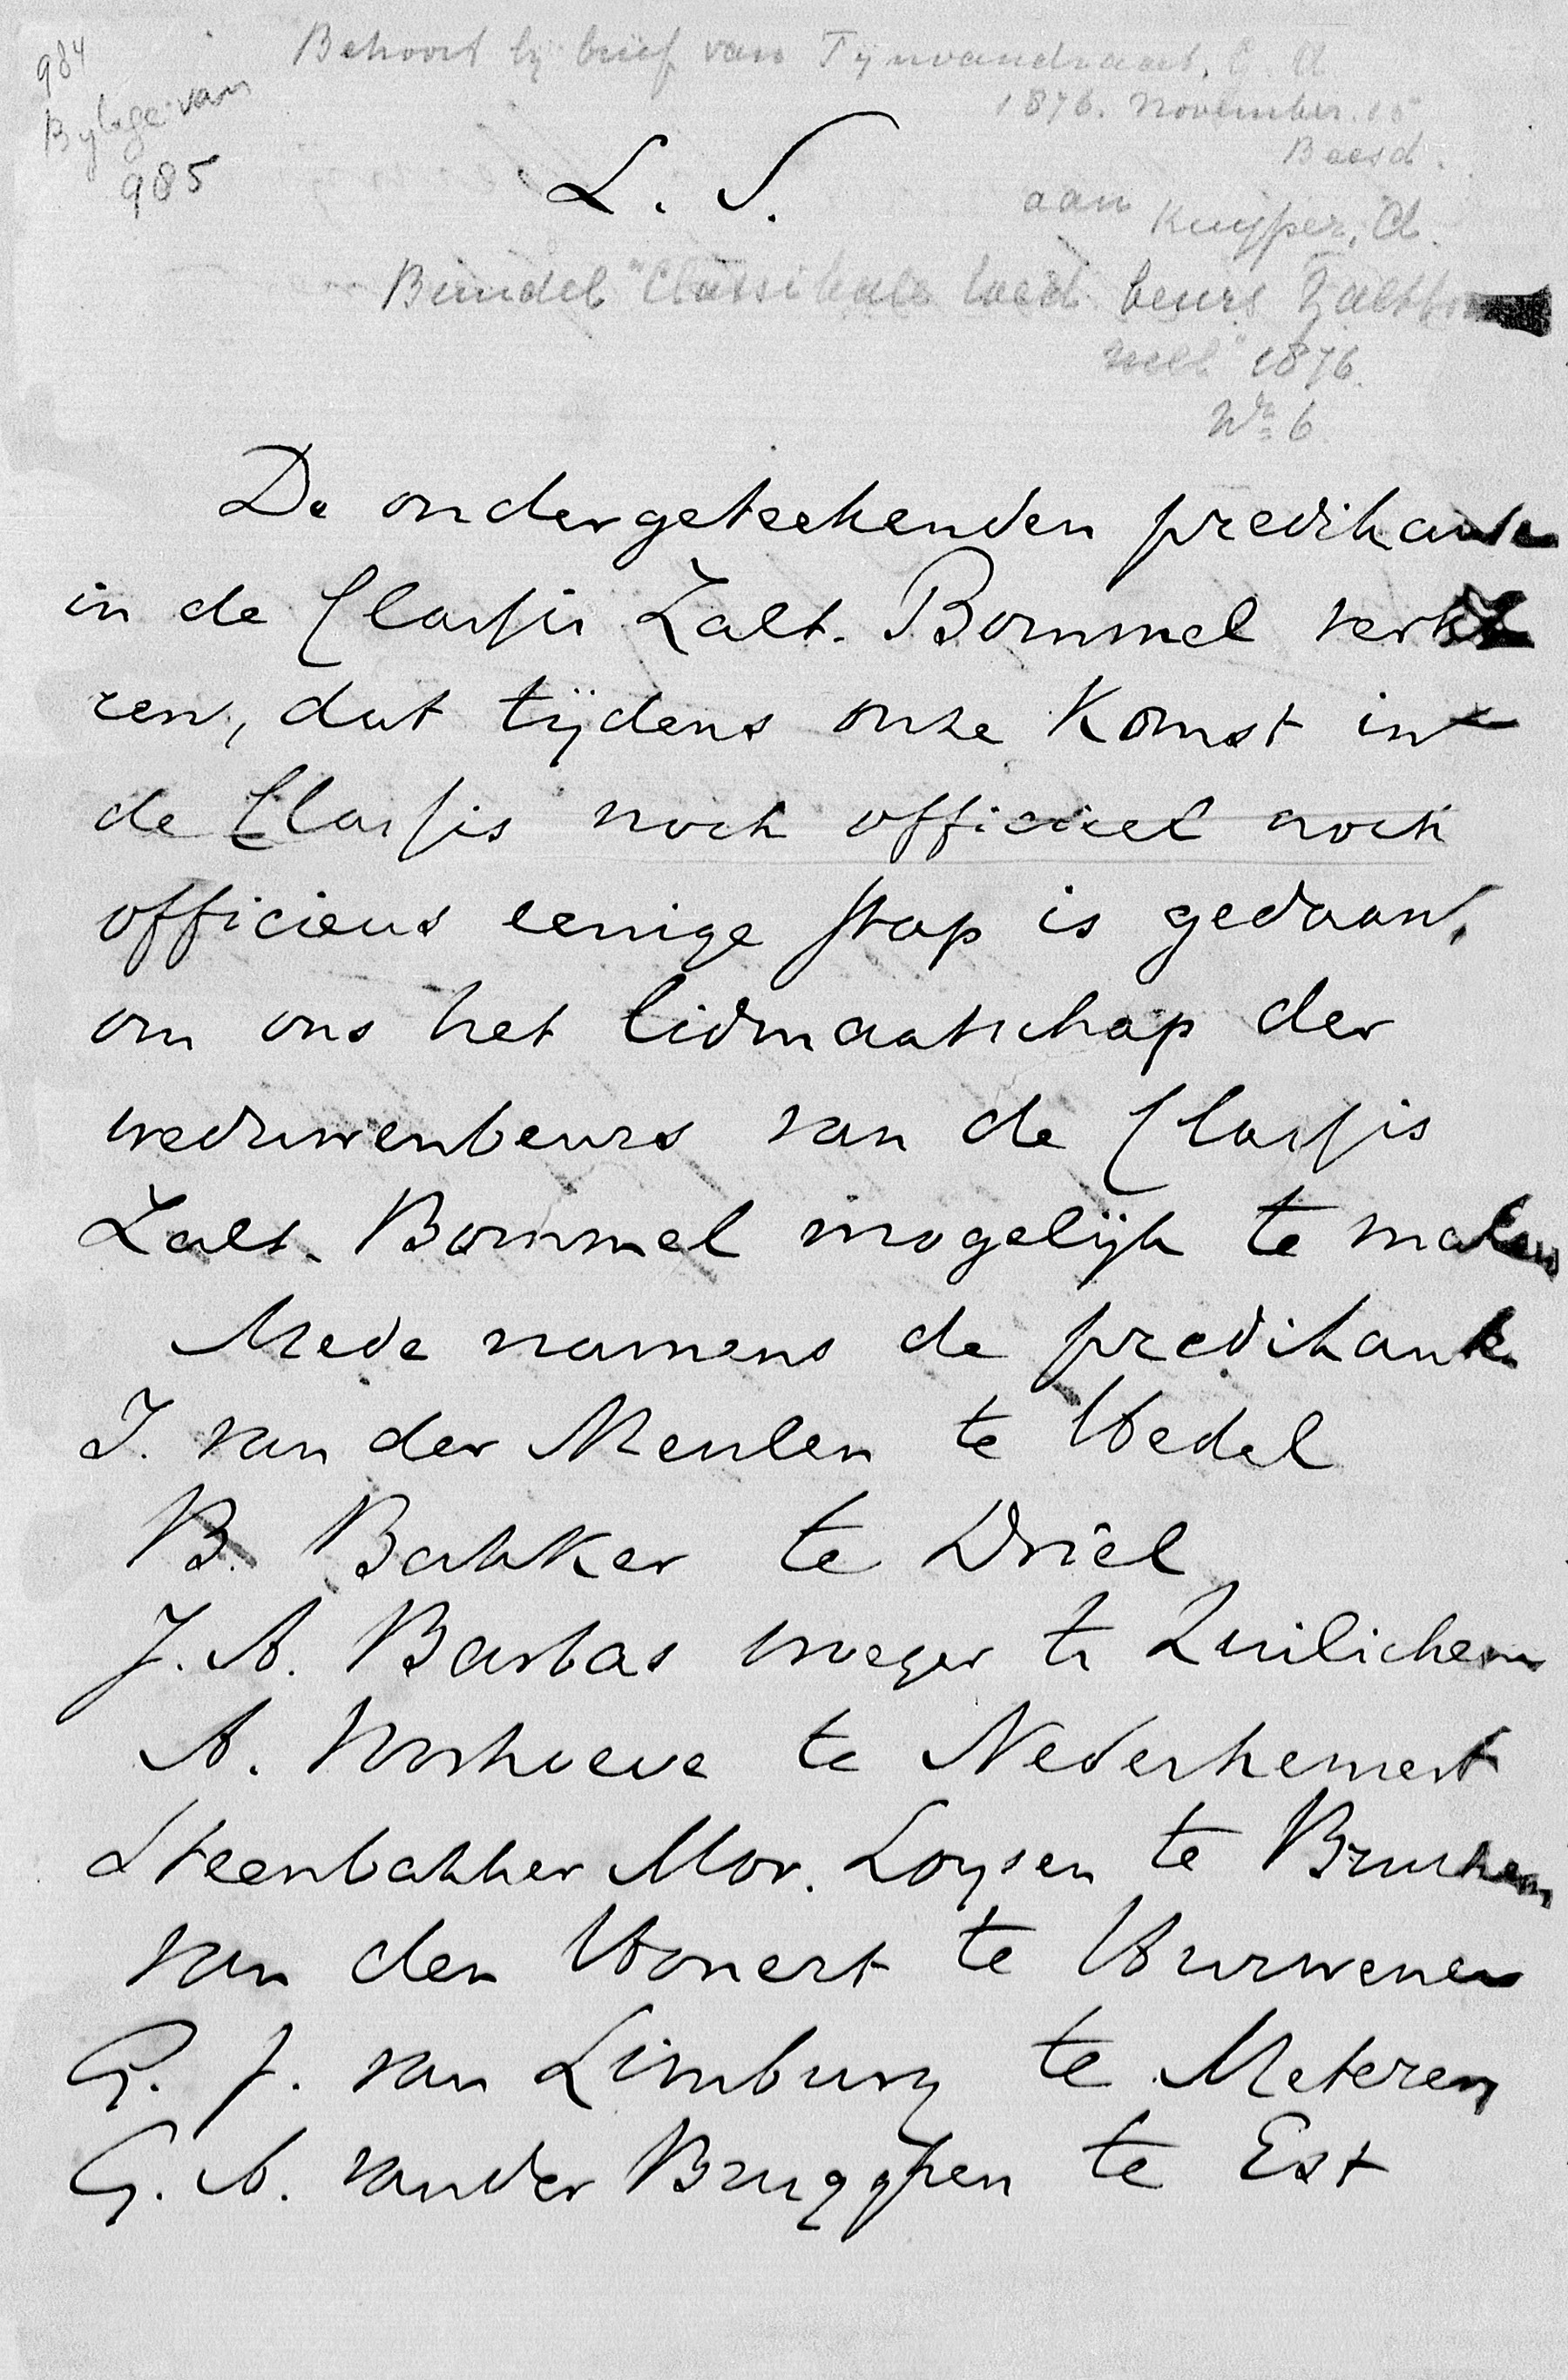 984
Bylage van
985
Behoort bij brief van Tijnvandraat, C. A
1876. November. 15
Beesd.
aan Kuyper, A.
Bundel "Classikale wed. beurs Zaltbom
mel" 1876.
No 6
L. S.
De ondergeteekenden predikanten
in de Classis Zalt. Bommel verkla
ren, dat tijdens onze Komst in
de Classis noch officieel noch
officieus eenige stap is gedaan,
om ons het lidmaatschap der
weduwenbeurs van de Classis
Zalt. Bommel mogelijk te maken
Mede namens de predikante
J. van der Meulen te Hedel
B. Bakker te Driel
J. A. Barbas vroeger te Zuilichem
A. Voorhoeve te Nederhemert
Steenbakker Mor. Loysen te Bruchem
van den Honert te Hurwenen
G. J. van Limburg te Meteren
G. A. vander Brugghen te Est